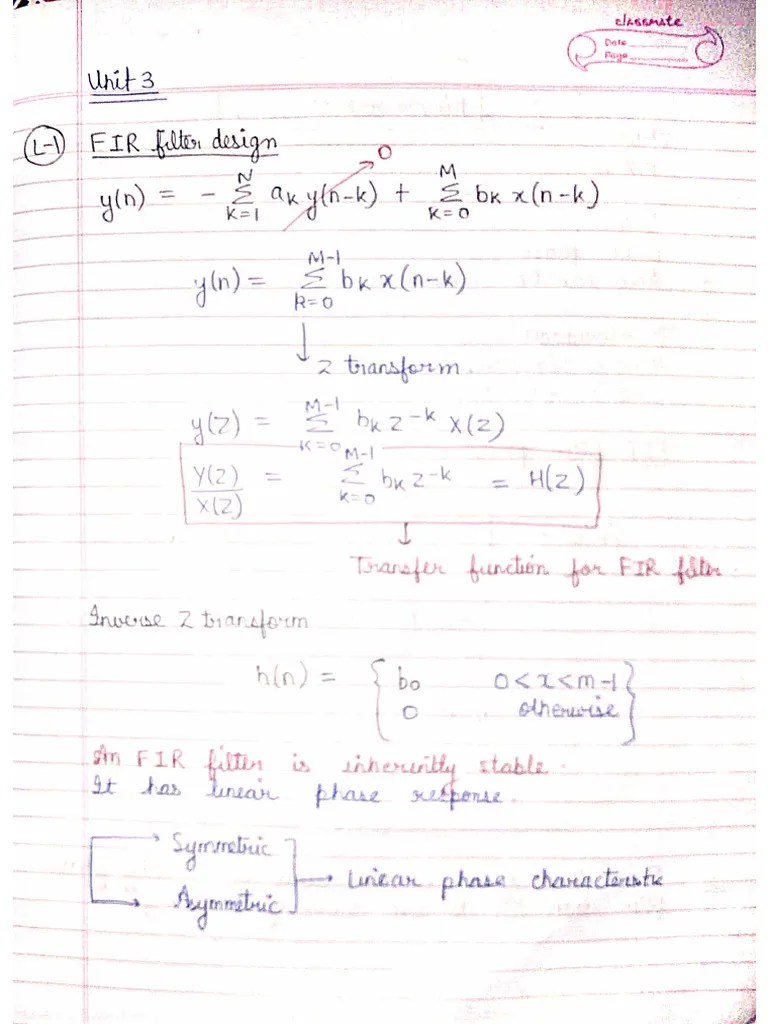 classmate
Date
Page
Unit 3
L-1 FIR filter design
y(n) = - N Σ k=1 ak y(n-k) → 0 + M Σ k=0 bk x(n-k)
y(n) = M-1 Σ k=0 bk x(n-k)
↓ Z transform.
y(z) = M-1 Σ k=0 bk z^-k X(z)
Y(z)/X(z) = M-1 Σ k=0 bk z^-k = H(z)
↓
Transfer function for FIR filter.
Inverse Z transform
h(n) = { b0 0<x<m-1
0 otherwise }
An FIR filter is inherently stable.
It has linear phase response.
→ Symmetric
→ Asymmetric → Linear phase characteristic